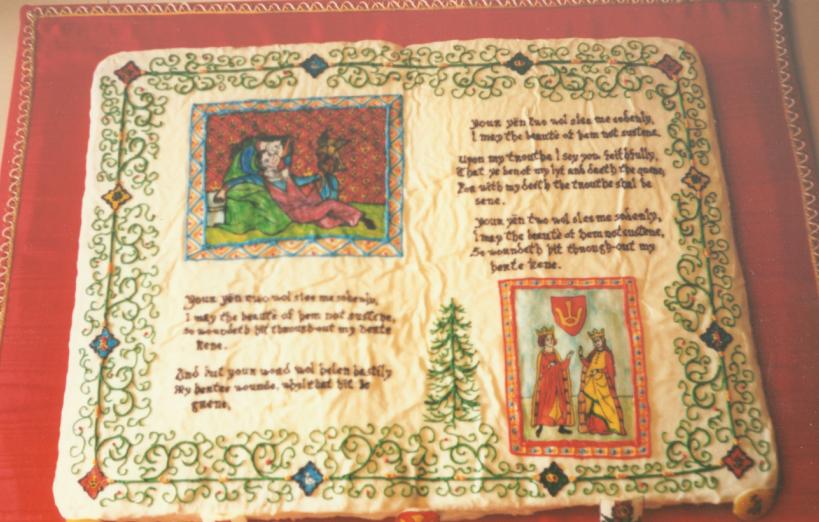 Your yën two wol slee me sodenly,
I may the beautè of hem not sustene,
so woundeth hit throughout my herte
kene.
And but your word wol helen hastily
My hertes wounde, whyle that hit is
grene,
Your yën two wol slee me sodenly,
I may the beautè of hem not sustene.
Upon my trouthe I sey you feithfully,
That ye ben of my lyf and deeth the quene;
For with my deeth the trouthe shal be
sene.
Your yën two wol slee me sodenly,
I may the beautè of hem not sustene,
So woundeth hit through-out my
herte kene.